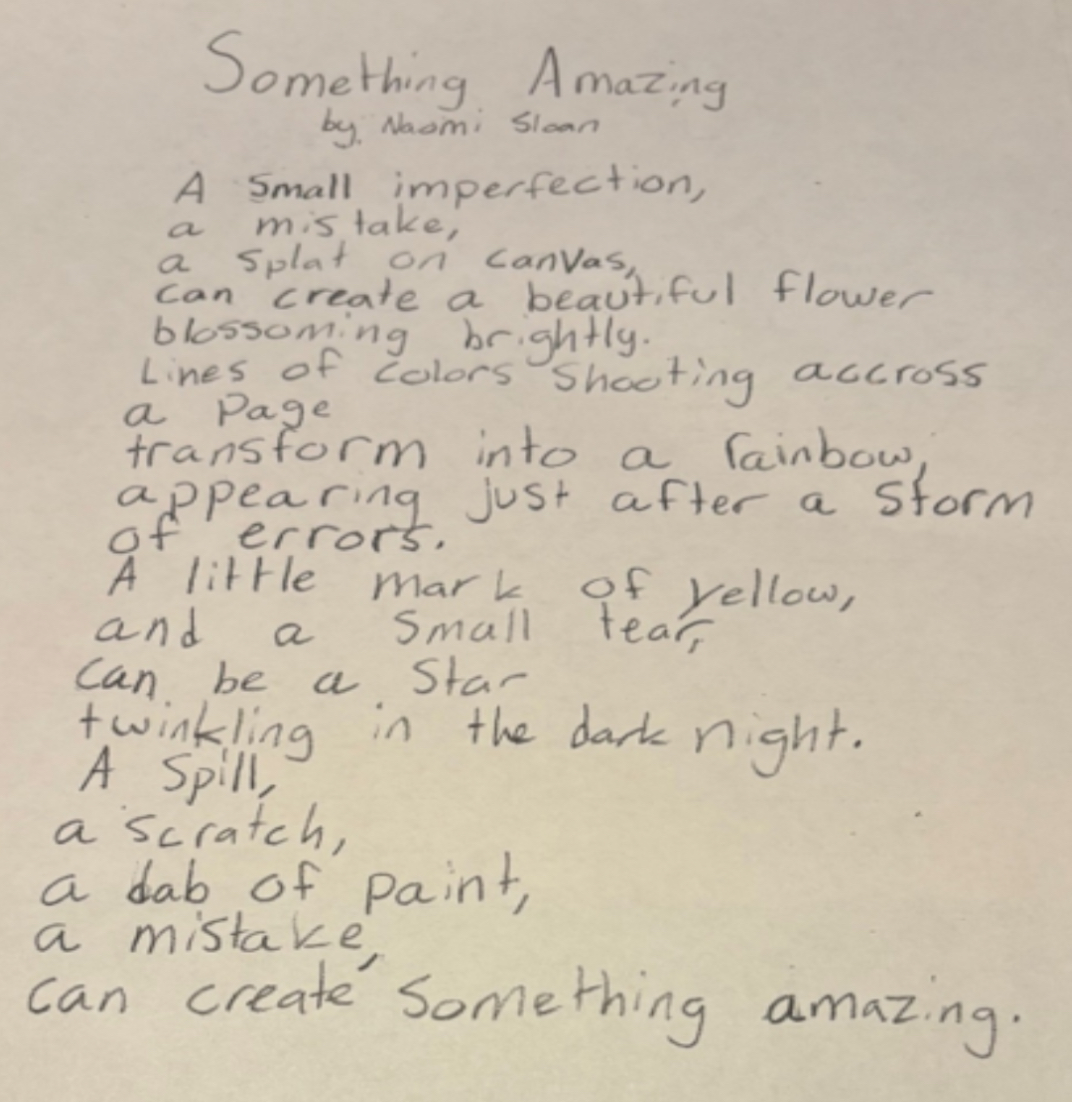 Something Amazing
by Naomi Sloan
A small imperfection,
a mistake,
a splat on canvas,
can create a beautiful flower
blossoming brightly.
Lines of colors shooting accross
a page
transform into a rainbow,
appearing just after a storm
of errors.
A little mark of yellow,
and a small tear,
can be a star
twinkling in the dark night.
A spill,
a scratch,
a dab of paint,
a mistake,
can create something amazing.